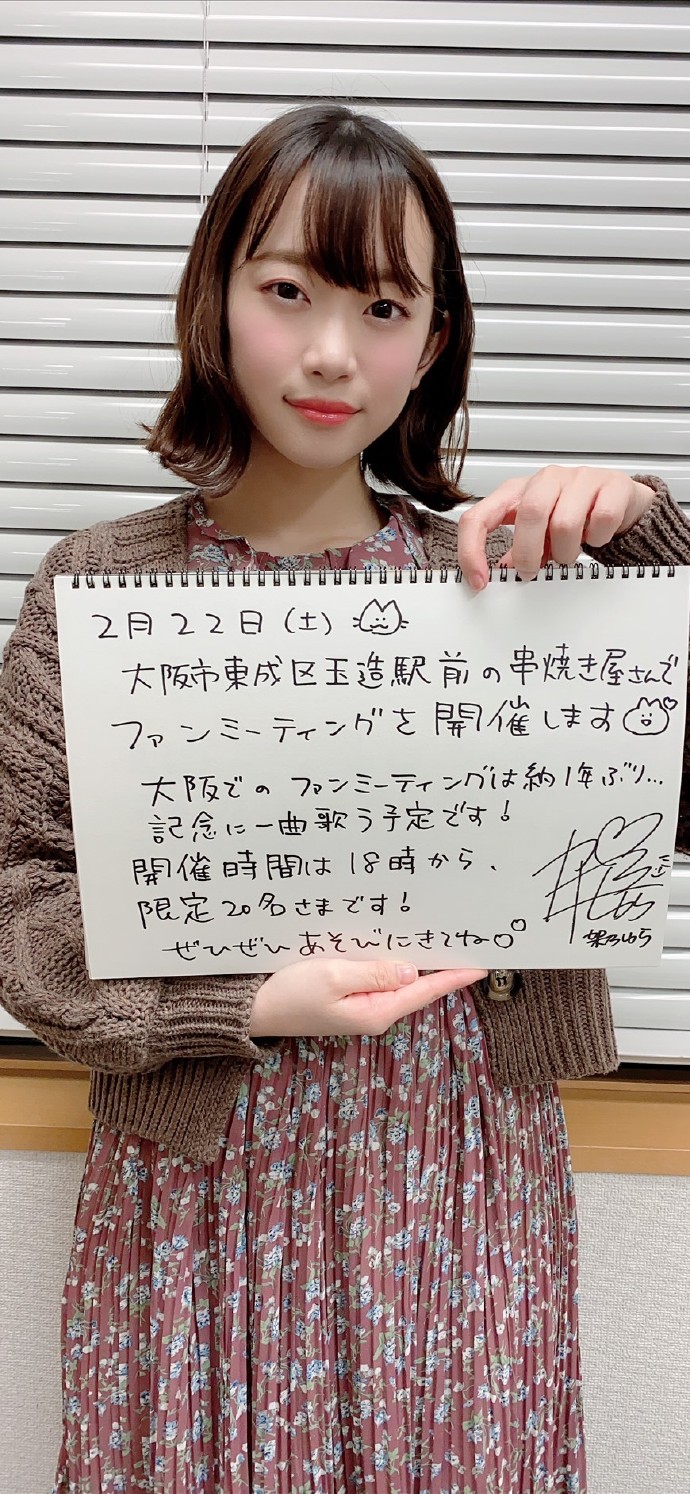 2月22日(土)
大阪市東成区玉造駅前の串焼き屋さんで
ファンミーティングを開催します
大阪でのファンミーティングは約1年ぶり...
記念に一曲歌う予定です!
開催時間は18時から、
限定20名さまです!
ぜひぜひあそびにきてね
架乃ゆら